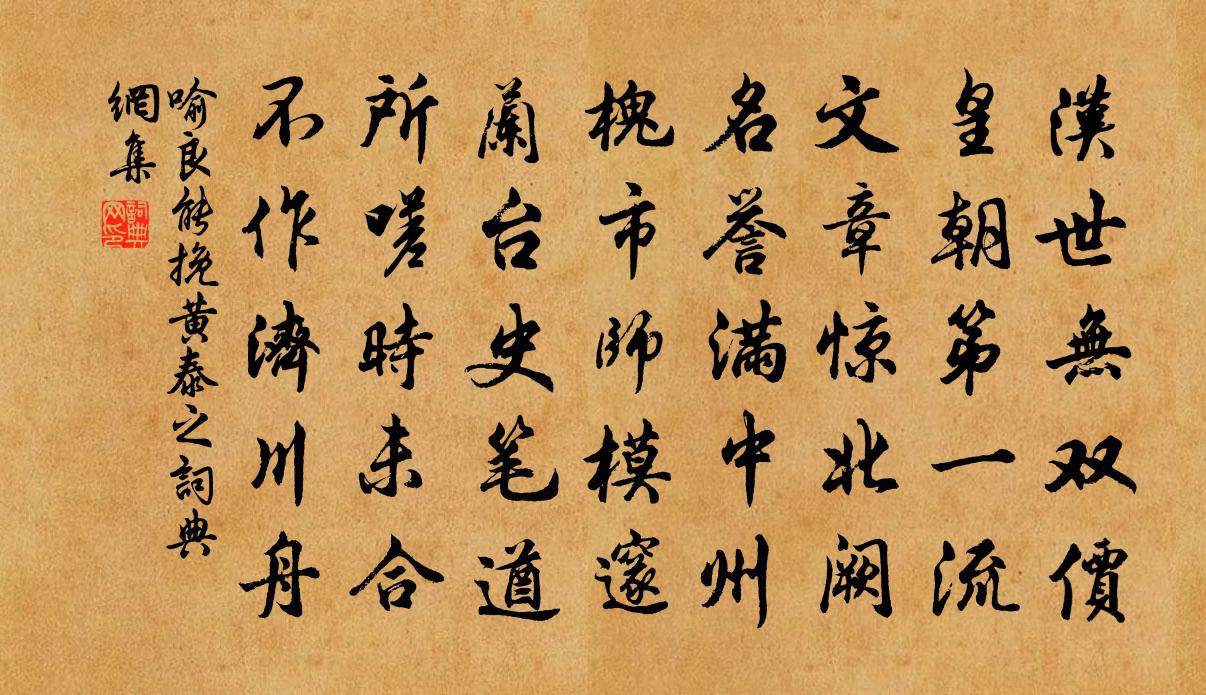 漢世無双價
皇朝第一流
文章惊北闕
名誉满中州
槐市師模邃
蘭台史笔遒
所嗟時未合
不作濟川舟
喻良能挽黄泰之詞典
網集
詞典
网印